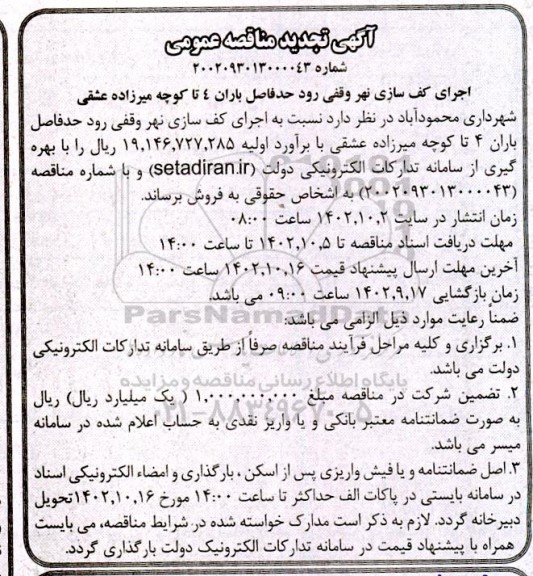 آگهی تجدید مناقصه عمومی
شماره ۲۰۰۲۰۹۳۰۱۳۰۰۰۰۴۳
اجرای کف سازی نهر وقفی رود حدفاصل باران ٤ تا کوچه میرزاده عشقی
شهرداری محمودآباد در نظر دارد نسبت به اجرای کف سازی نهر وقفی رود حدفاصل
باران ۴ تا کوچه میرزاده عشقی با برآورد اولیه ۱۹,۱۴۶,۷۲۷,۲۸۵ ریال را با بهره
گیری از سامانه تدارکات الکترونیکی دولت (setadiran.ir) و با شماره مناقصه
(۲۰۰۲۰۹۳۰۱۳۰۰۰۰۴۳) به اشخاص حقوقی به فروش برساند.
زمان انتشار در سایت ۱۴۰۲,۱۰,۲ ساعت ۰۸:۰۰
مهلت دریافت اسناد مناقصه تا ۱۴۰۲,۱۰,۵ تا ساعت ۱۴:۰۰
آخرین مهلت ارسال پیشنهاد قیمت ۱۴۰۲,۱۰,۱۶ ساعت ۱۴:۰۰
زمان بازگشایی ۱۴۰۲,۹,۱۷ ساعت ۰۹:۰۰ می باشد.
ParsNamadData
ضمناً رعایت موارد ذیل الزامی می باشد:
۱. برگزاری و کلیه مراحل فرآیند مناقصه صرفاً از طریق سامانه تدارکات الکترونیکی
دولت می باشد.
پایگاه اطلاع رسانی مناقصه و مزایده
۲. تضمین شرکت در مناقصه مبلغ ۱,۰۰۰,۰۰۰,۰۰۰ ( یک میلیارد ریال) ریال
۰۲۱-۸۸۳۴۹۶۷۰-۵
به صورت ضمانتنامه معتبر بانکی و یا واریز نقدی به حساب اعلام شده در سامانه
میسر می باشد.
۳.اصل ضمانتنامه و یا فیش واریزی پس از اسکن ، بارگذاری و امضاء الکترونیکی اسناد
در سامانه بایستی در پاکات الف حداکثر تا ساعت ۱۴:۰۰ مورخ ۱۴۰۲,۱۰,۱۶تحویل
دبیرخانه گردد. لازم به ذکر است مدارک خواسته شده در شرایط مناقصه، می بایست
همراه با پیشنهاد قیمت در سامانه تدارکات الکترونیک دولت بارگذاری گردد.